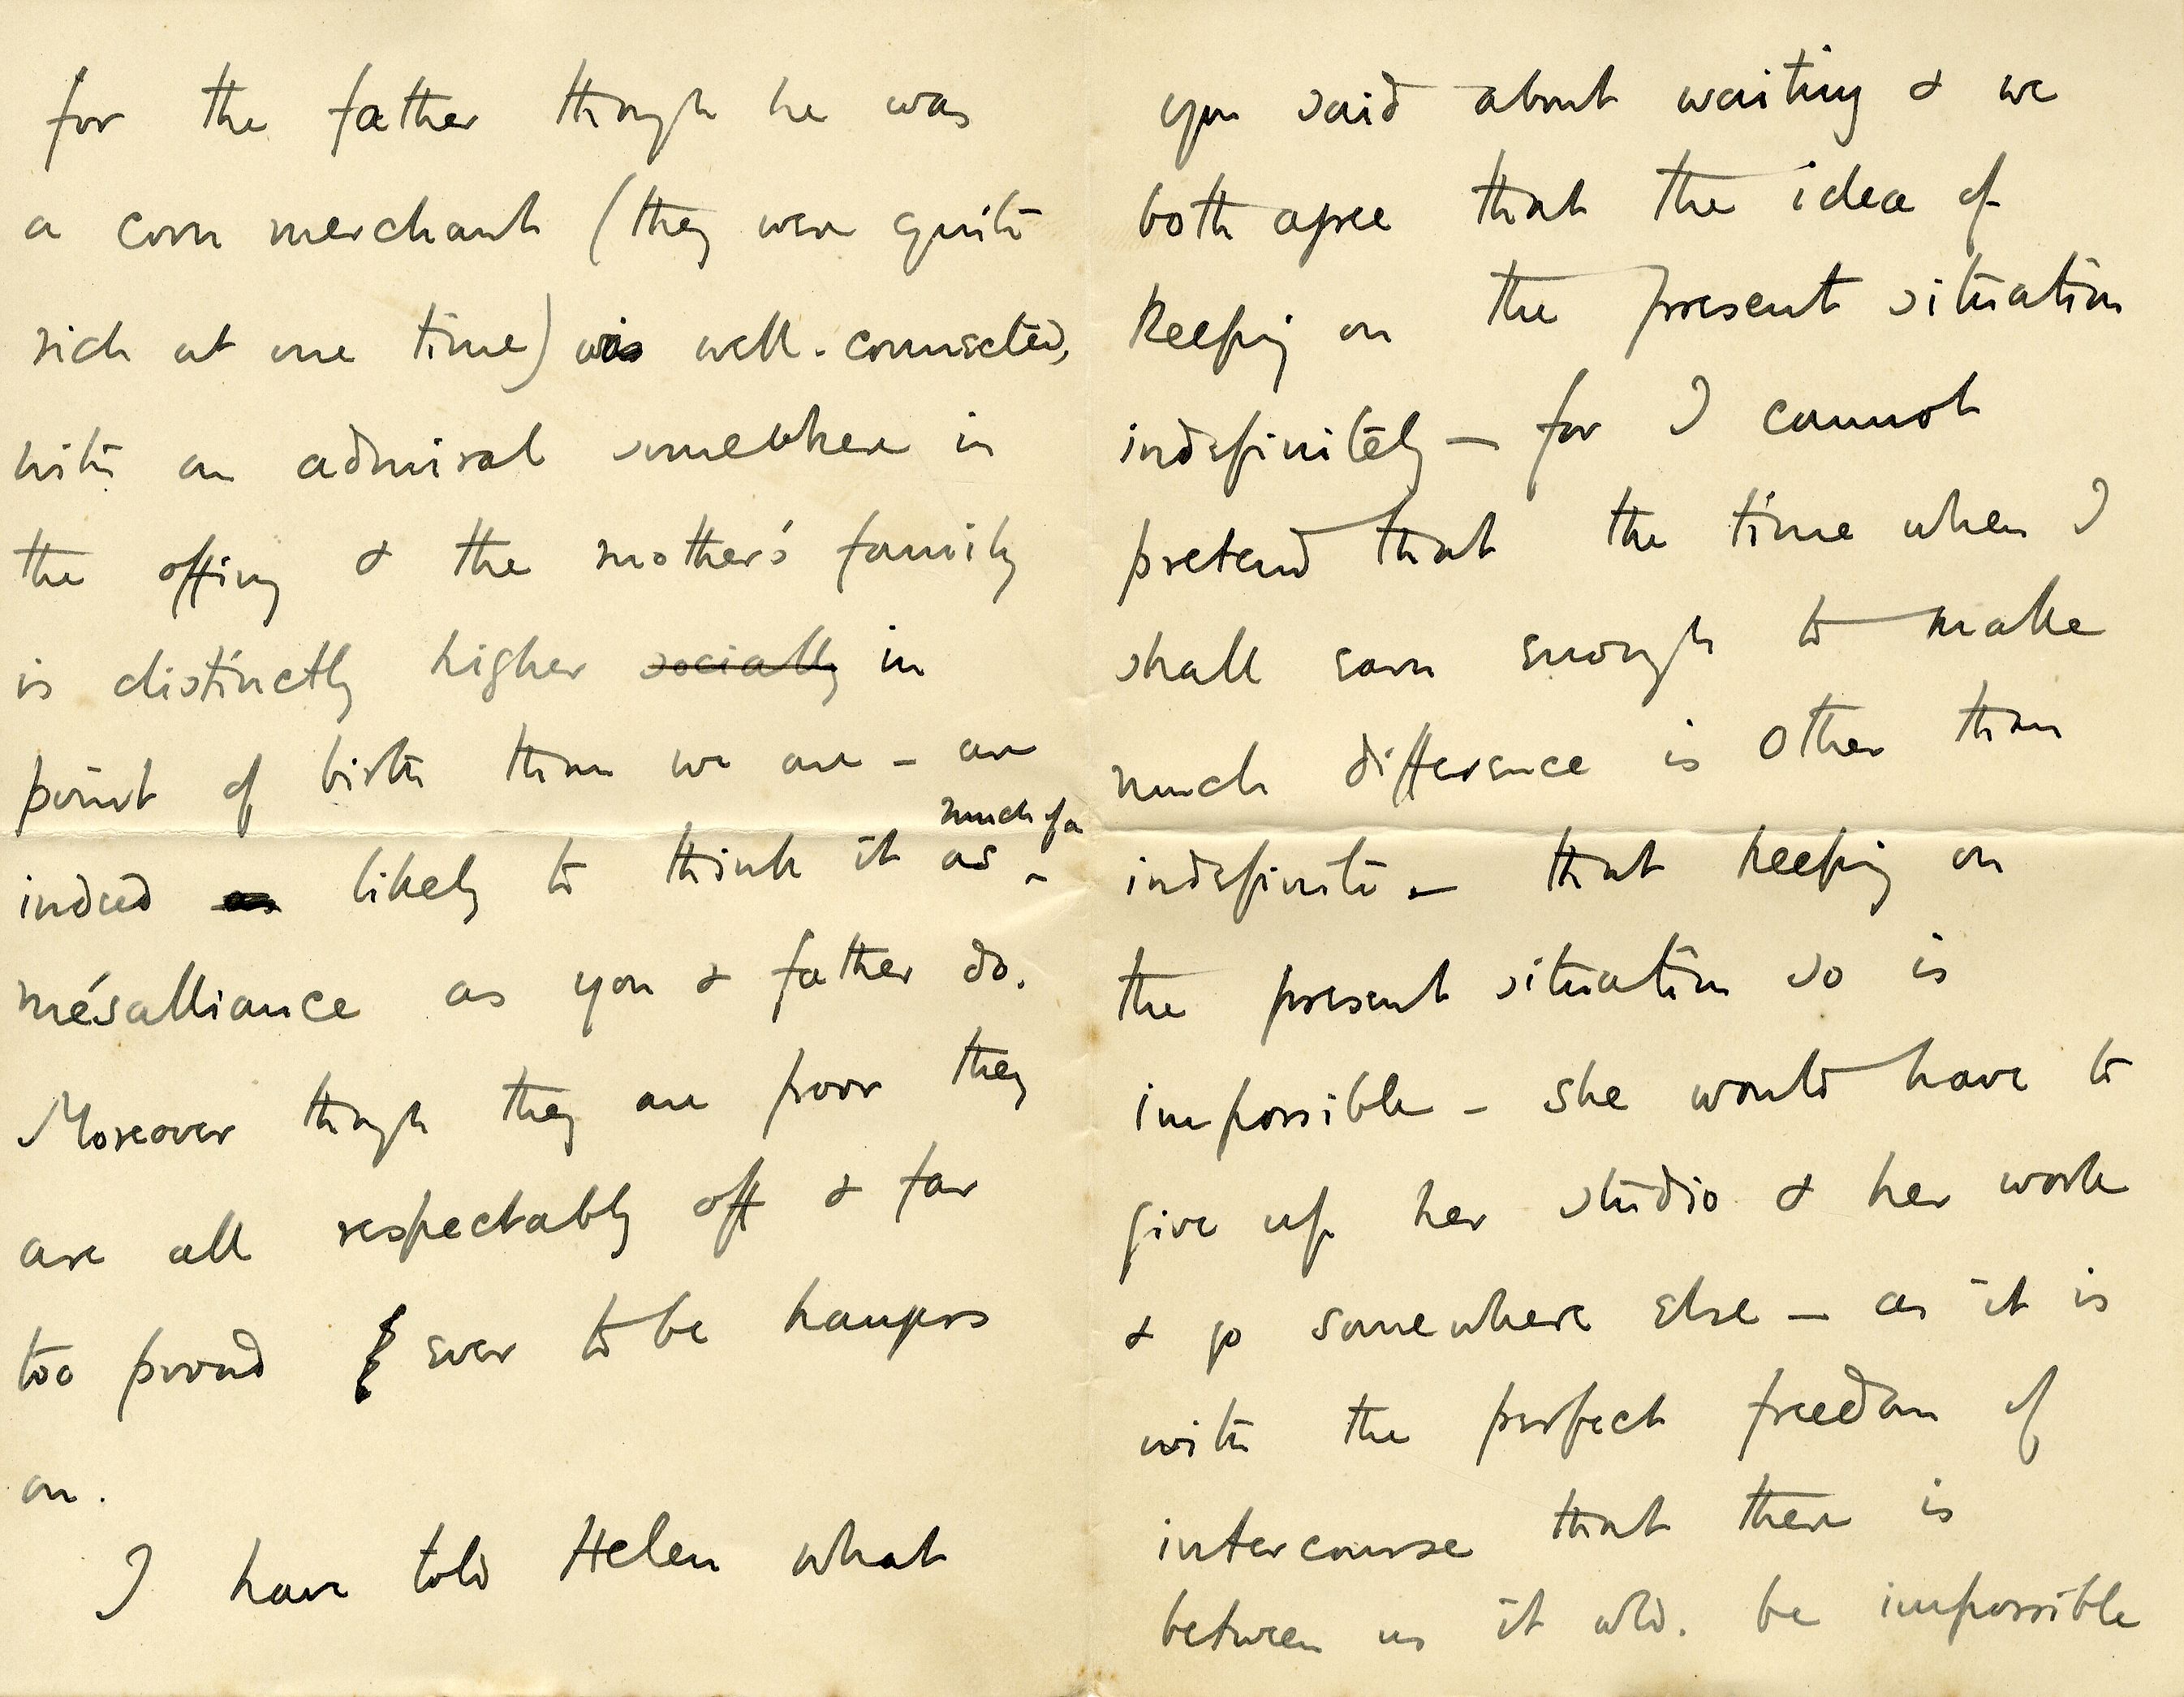 for the father though he was
a corn merchant (they were quite
rich at one time) was well-connected,
with an admiral somewhere in
the offing & the mother's family
is distinctly higher socially in
point of birth than we are – are
much of a
indeed likely to think it as
mésalliance as you & father do.
Moreover though they are poor they
are all respectably off & far
too proud ever to be hangers
on.
I have told Helen what
you said about waiting & we
both agree that the idea of
keeping on the present situation
indefinitely – for I cannot
pretend that the time when I
shall earn enough to make
much difference is other than
indefinite – that keeping on
the present situation so is
impossible – she would have to
give up her studio & her work
& go somewhere else – as it is
with the perfect freedom of
intercourse that there is
between us it wld. be impossible